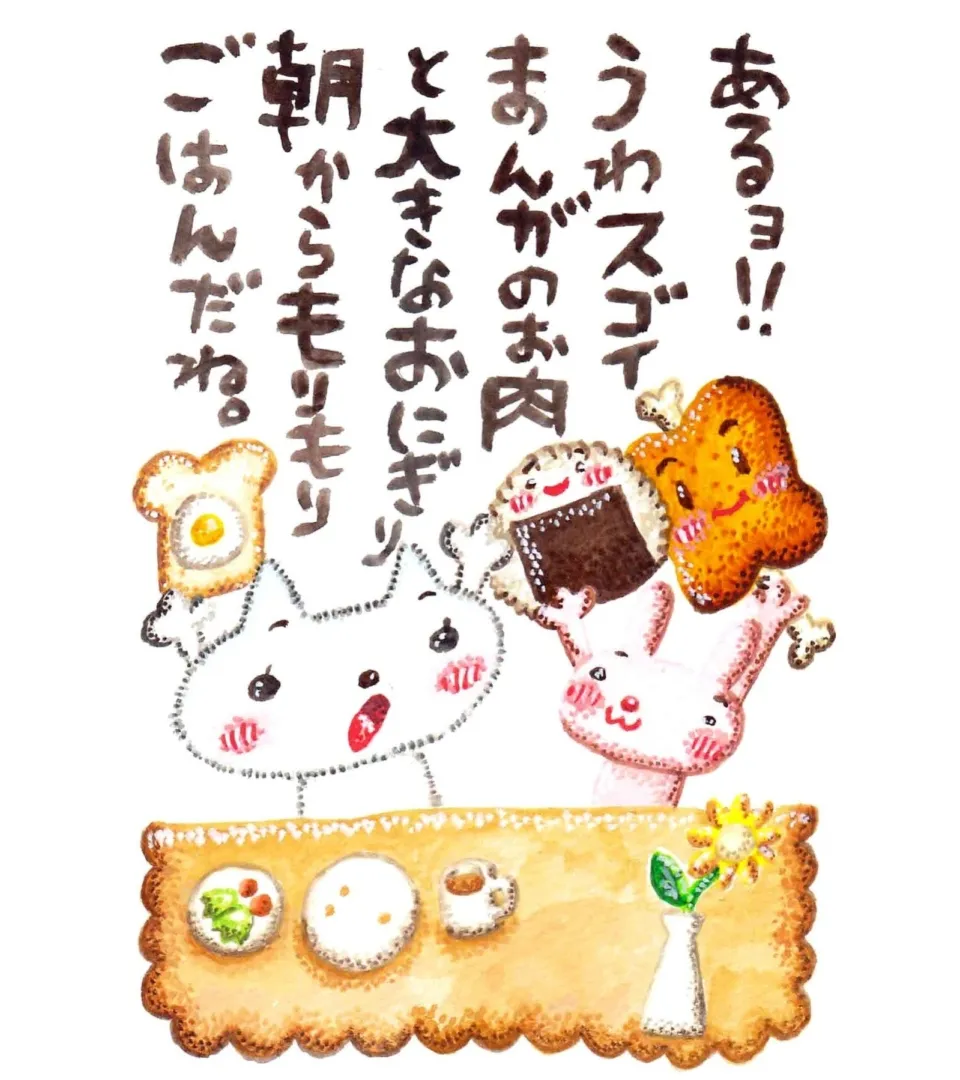 あるヨ!!
うわスゴイ
まんがのお肉
と大きなおにぎり
朝からもりもり
ごはんだね。